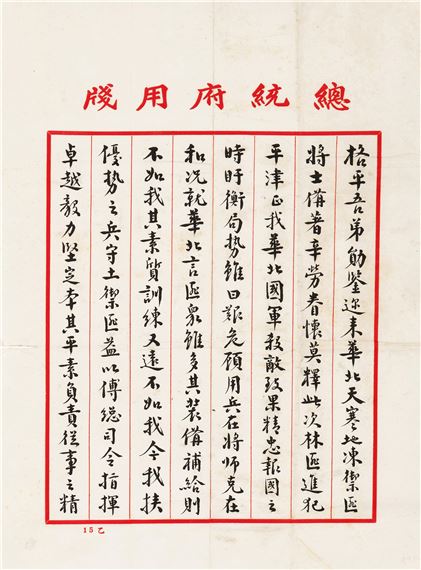 總統府用牋
格平吾弟勛鑒邇來華北天寒地凍禦匪
將士備著辛勞眷懷莫釋此次林匪進犯
平津正我華北國軍殺敵致果精忠報國之
時盱衡局勢雖曰艱危顧用兵在將師克在
和况就華北言匪衆雖多其裝備補給則
不如我其素質訓練又遠不如我今我挾
優勢之兵守土禦匪益以傅總司令指揮
卓越毅力堅定本其平素負責從事之精
15乙